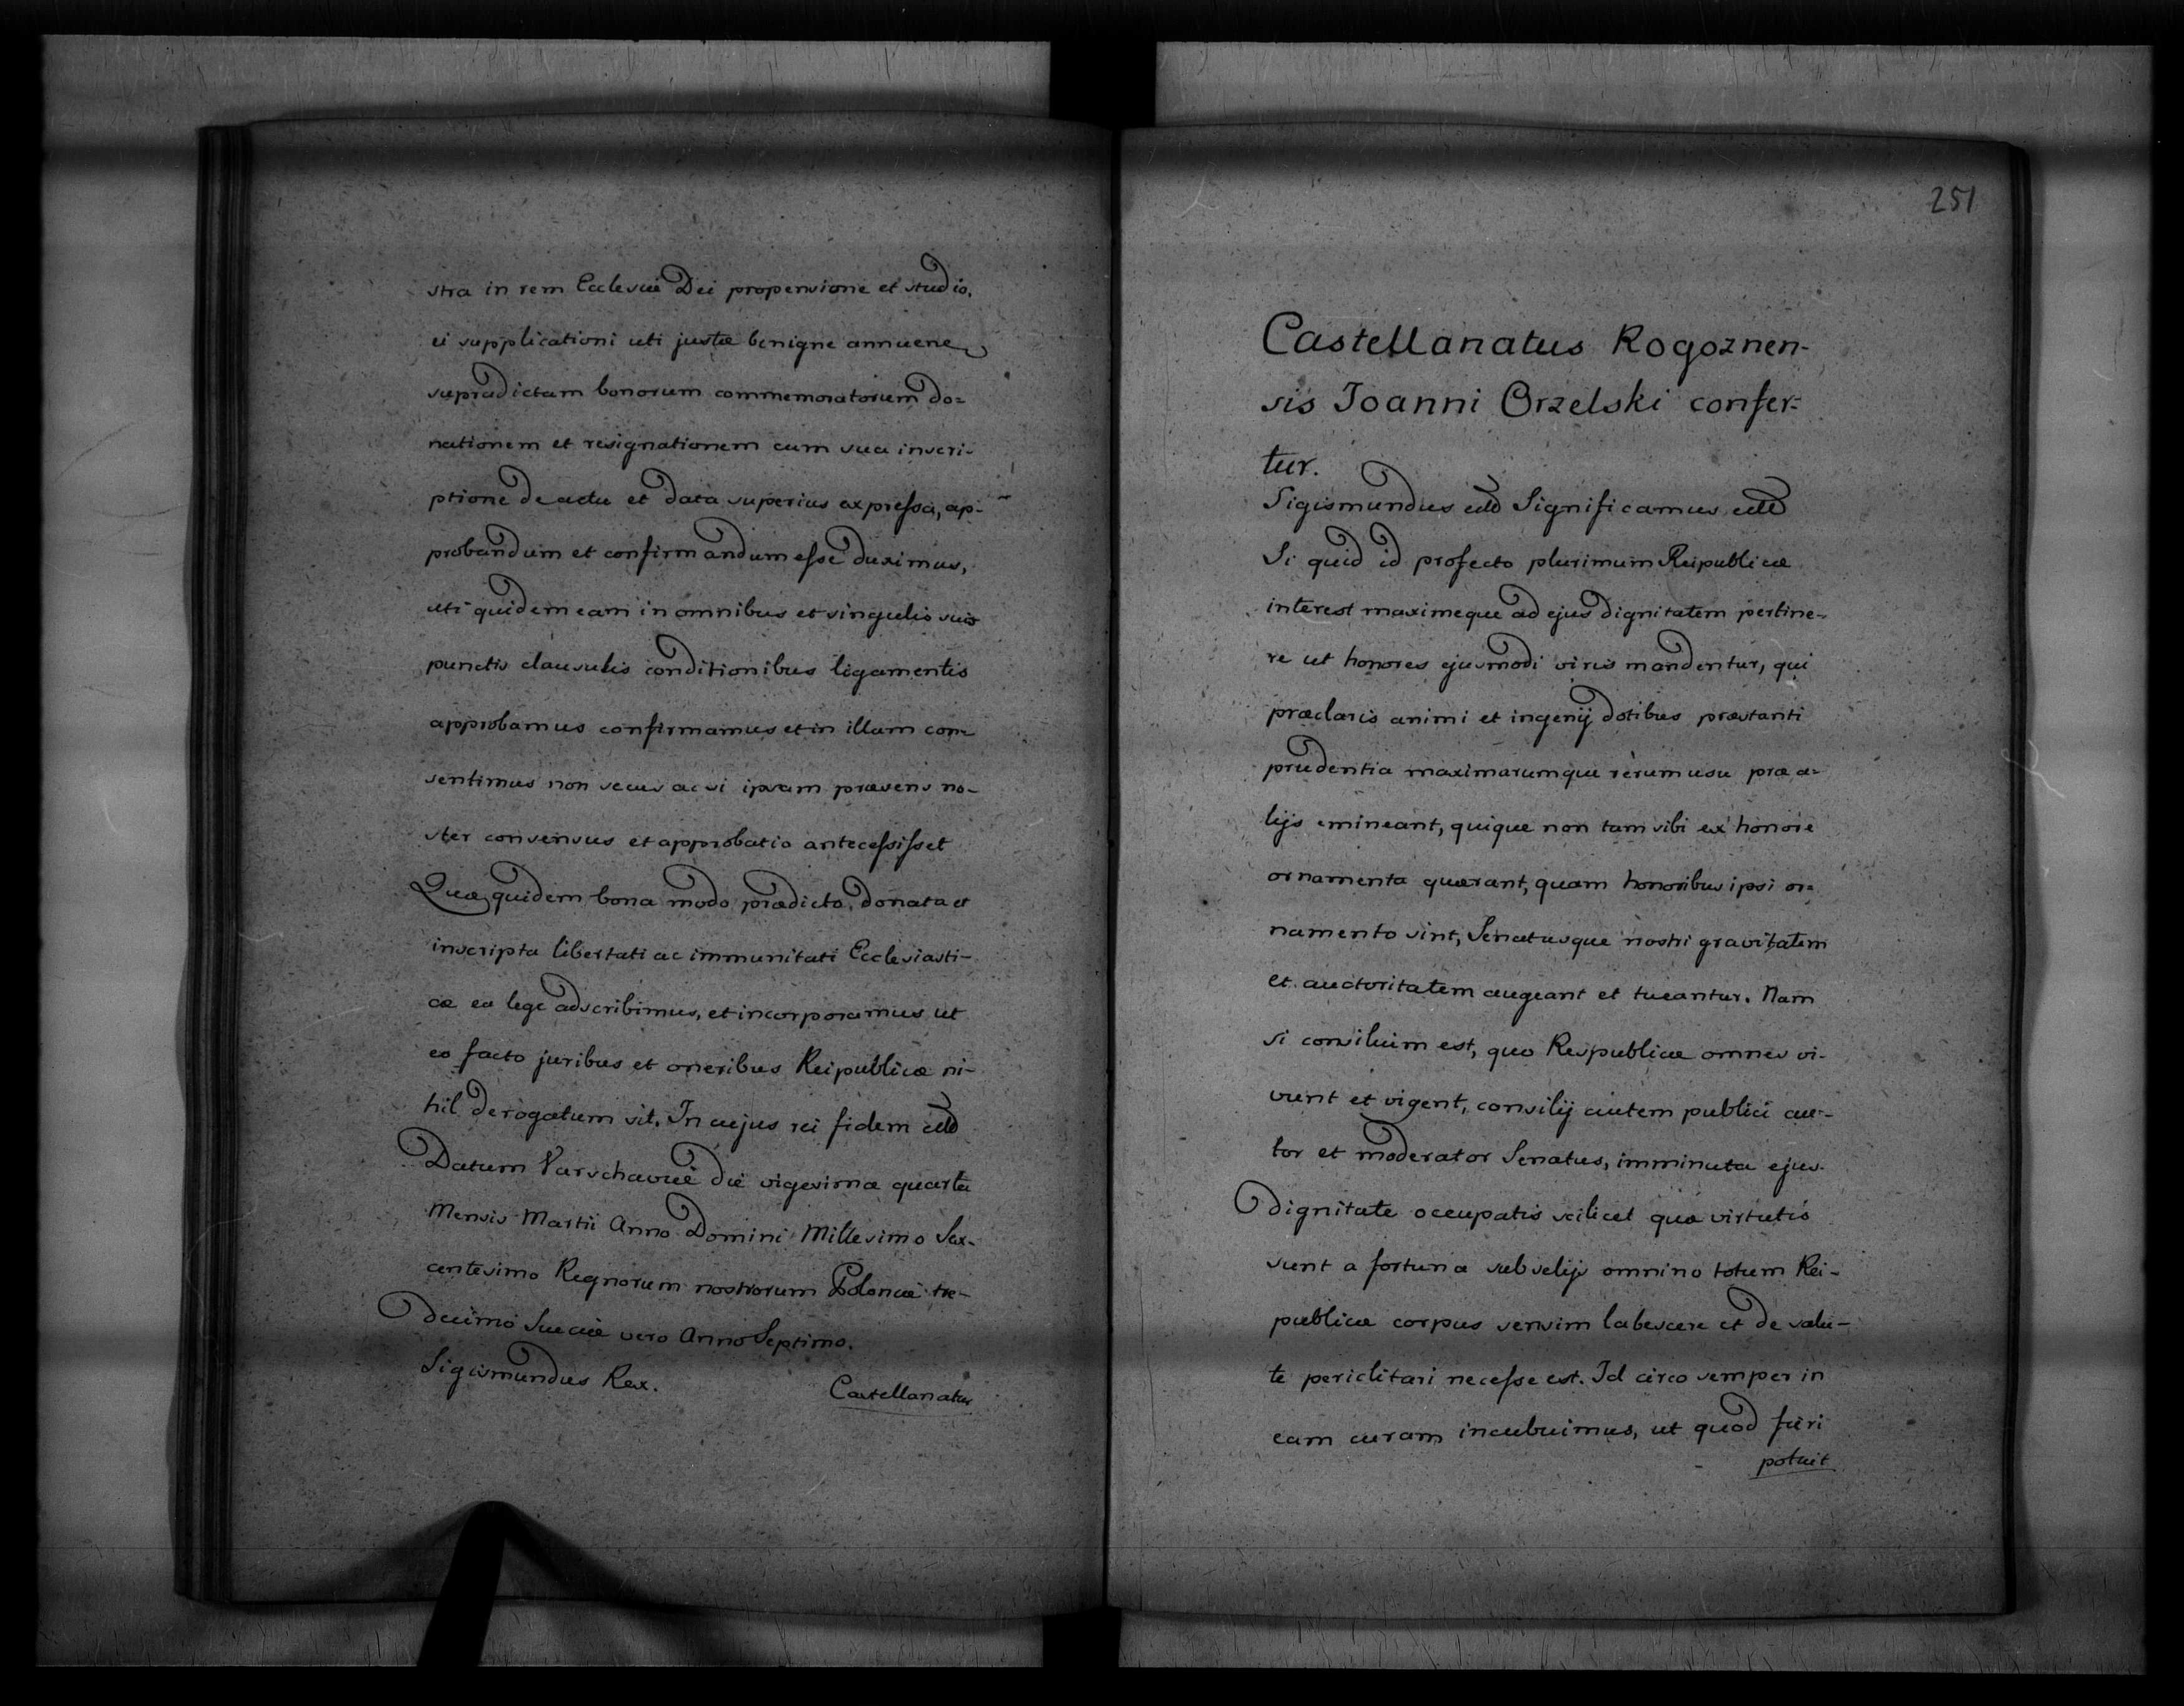 stra in rem Ecclesiæ Dei propensione et studio,
ei supplicationi uti justæ benigne annuene
supradictam bonorum commemoratorum do=
nationem et resignationem cum sua inscri-
ptione de actu et data superius expressa, ap-
probandum et confirmandum esse duximus,
uti quidem eam in omnibus et singulis suis
punctis clausulis conditionibus ligamentis
approbamus confirmamus et in illam con=
sentimus non secus ac si ipsam præsens no-
ster consensus et approbatio antecessisset
Quæ quidem bona modo prædicto donata et
inscripta libertati ac immunitati Ecclesiasti-
cæ ea lege adscribimus, et incorporamus ut
eo facto juribus et oneribus Reipublicæ ni-
hil derogatum sit. In cujus rei fidem
Datum Varschaviæ die vigesima quarta
Mensis Martii Anno Domini Millesimo Sex-
centesimo Regnorum nostrorum Poloniæ tre-
decimo Sueciæ vero Anno Septimo.
Sigismundus Rex.
Castellanatus
251
Castellanatus Rogoznen-
sis Joanni Orzelski confer=
tur.
Sigismundus Significamus
Si quid id profecto plurimum Reipublicæ
interest maximeque ad ejus dignitatem pertine-
re ut honores ejusmodi viris mandentur, qui
præclaris animi et ingenij dotibus præstanti
prudentia maximarumque rerum usu præ a=
lijs emineant, quique non tam sibi ex honore
ornamenta quærant, quam honoribus ipsi or=
namento sint, Senatusque nostri gravitatem
et auctoritatem augeant et tueantur. Nam
si consilium est, quo Respublicæ omnes vi-
vunt et vigent, consilij autem publici auc-
tor et moderator Senatus, imminuta ejus
dignitate occupatis scilicet quæ virtutis
sunt a fortuna subselijs omnino totum Rei-
publicæ corpus sensim labescere et de salu-
te periclitari necesse est. Id circo semper in
eam curam incubuimus, ut quod fieri
potuit